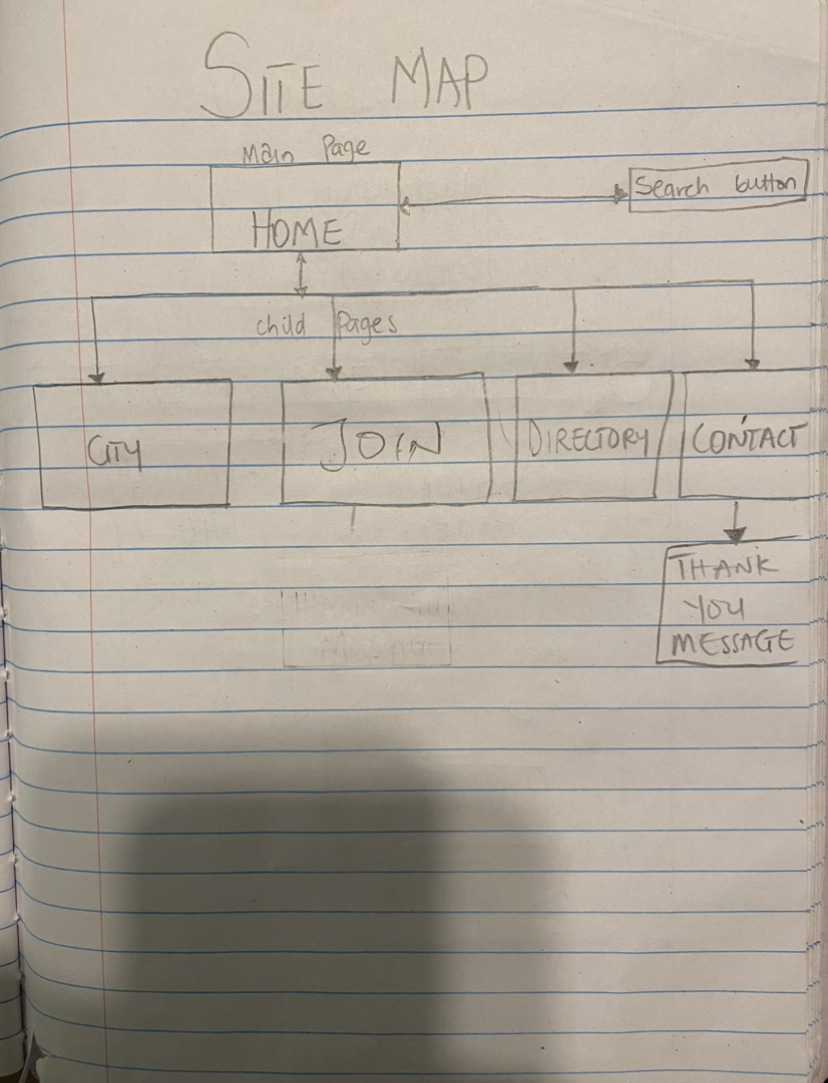 SITE MAP
Main Page
Search button
HOME
child Pages
CITY
JOIN
DIRECTORY
CONTACT
THANK
YOU
MESSAGE